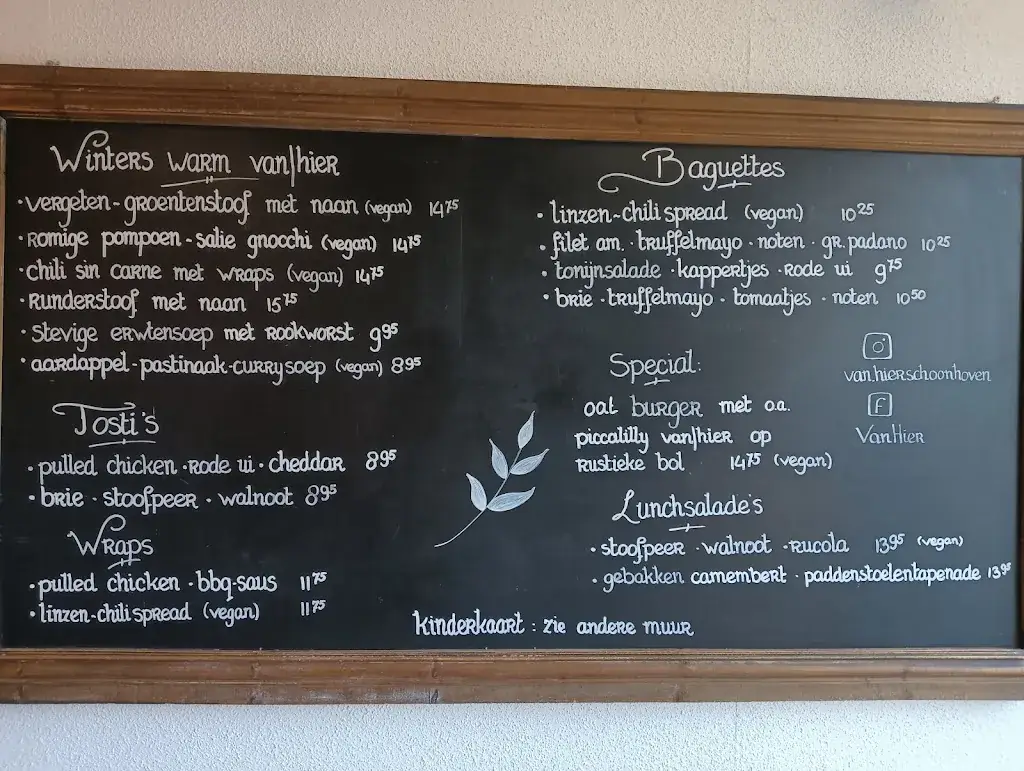 Winters warm van|hier
• vergeten-groentenstoof met naan (vegan) 14⁷⁵
• romige pompoen-salie gnocchi (vegan) 14⁷⁵
• chili sin carne met wraps (vegan) 14⁷⁵
• runderstoof met naan 15⁷⁵
• stevige erwtensoep met rookworst 9⁹⁵
• aardappel-pastinaak-currysoep (vegan) 8⁹⁵
Tosti's
• pulled chicken • rode ui • cheddar 8⁹⁵
• brie • stoofpeer • walnoot 8⁹⁵
Wraps
• pulled chicken • bbq-saus 11⁷⁵
• linzen-chilispread (vegan) 11⁷⁵
Baguettes
• linzen-chilispread (vegan) 10²⁵
• filet am. • truffelmayo • noten • gr. padano 10²⁵
• tonijnsalade • kappertjes • rode ui 9⁷⁵
• brie • truffelmayo • tomaatjes • noten 10⁵⁰
Special:
oat burger met o.a.
piccalilly van|hier op
rustieke bol 14⁷⁵ (vegan)
van.hierschoonhoven
f
VanHier
Lunchsalade's
• stoofpeer • walnoot • rucola 13⁹⁵ (vegan)
• gebakken camembert • paddenstoelentapenade 13⁹⁵
kinderkaart : zie andere muur